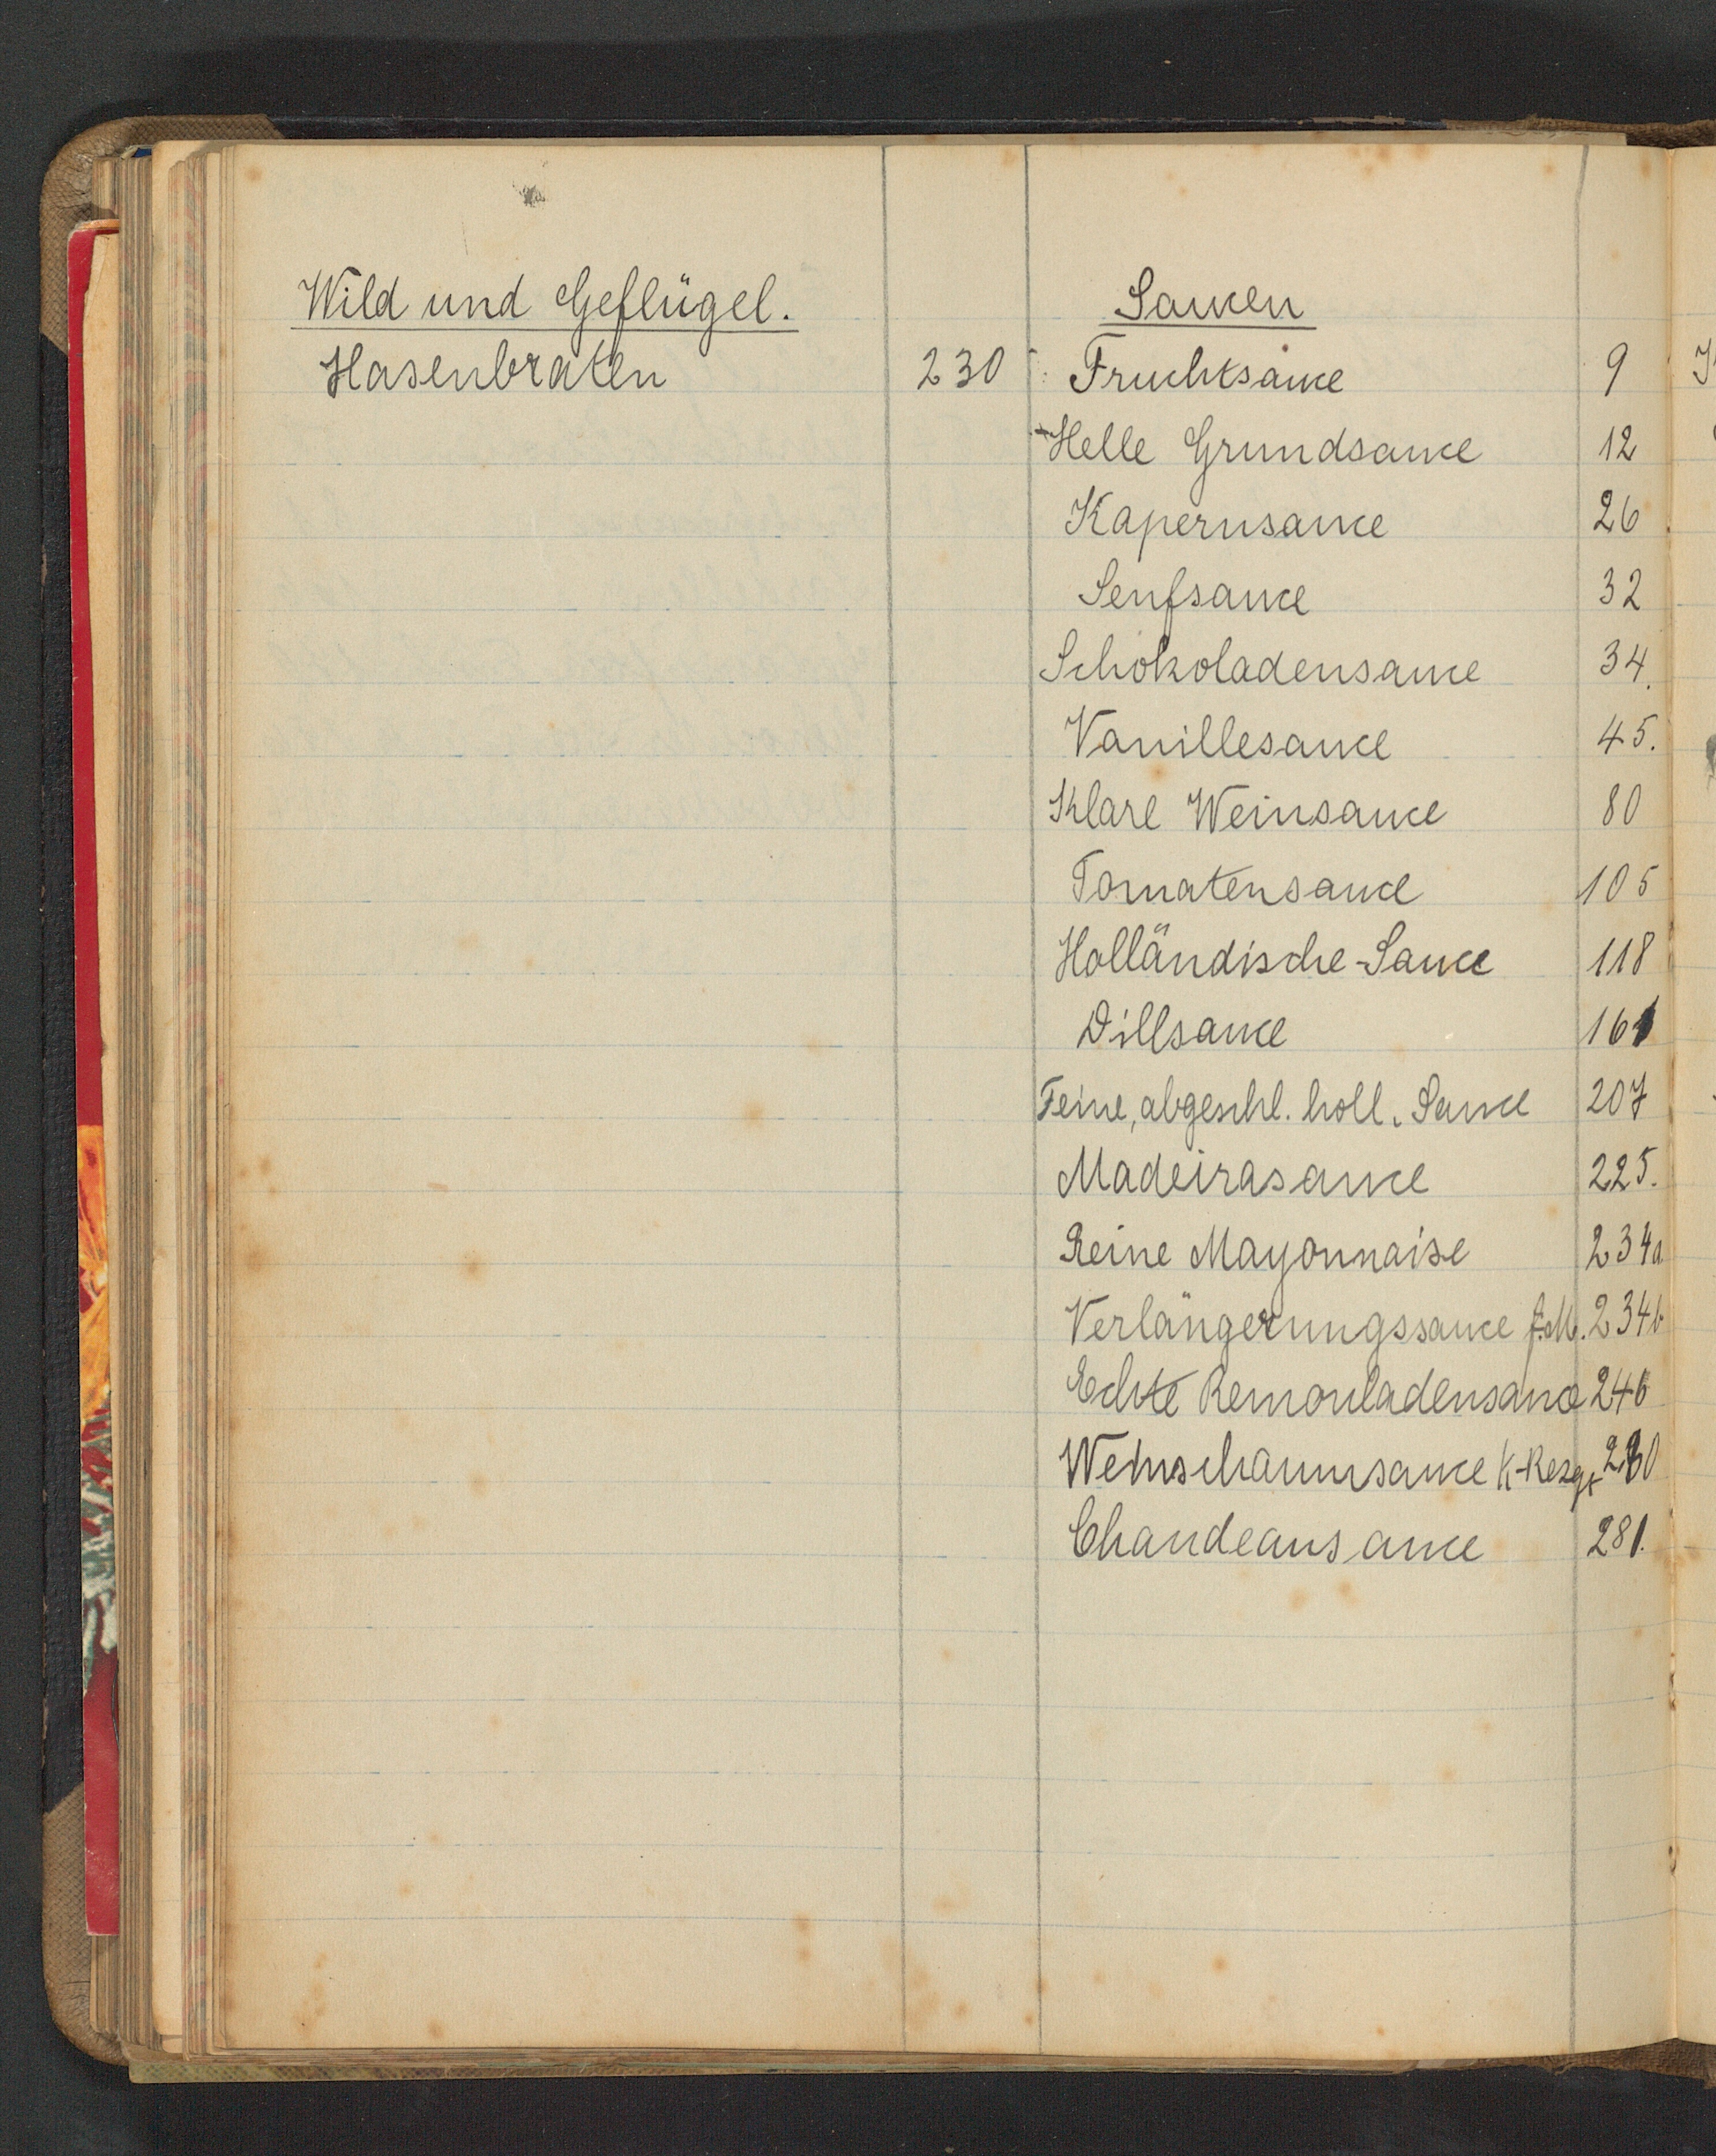 Wild und Geflügel.
Hasenbraten 230
Saucen
Fruchtsauce 9
Helle Grundsauce 12
Kapernsauce 26
Senfsauce 32
Schokoladensauce 34.
Vanillesauce 45.
Klare Weinsauce 80
Tomatensauce 105
Holländische-Sauce 118
Dillsauce 161
Feine, abgeschl. holl. Sauce 207
Madeirasauce 225.
Reine Mayonnaise 234a
Verlängerungssauce f. M. 234b
Echte Remouladensauce 246
Weinschaumsauce
Chaudeausauce 281.